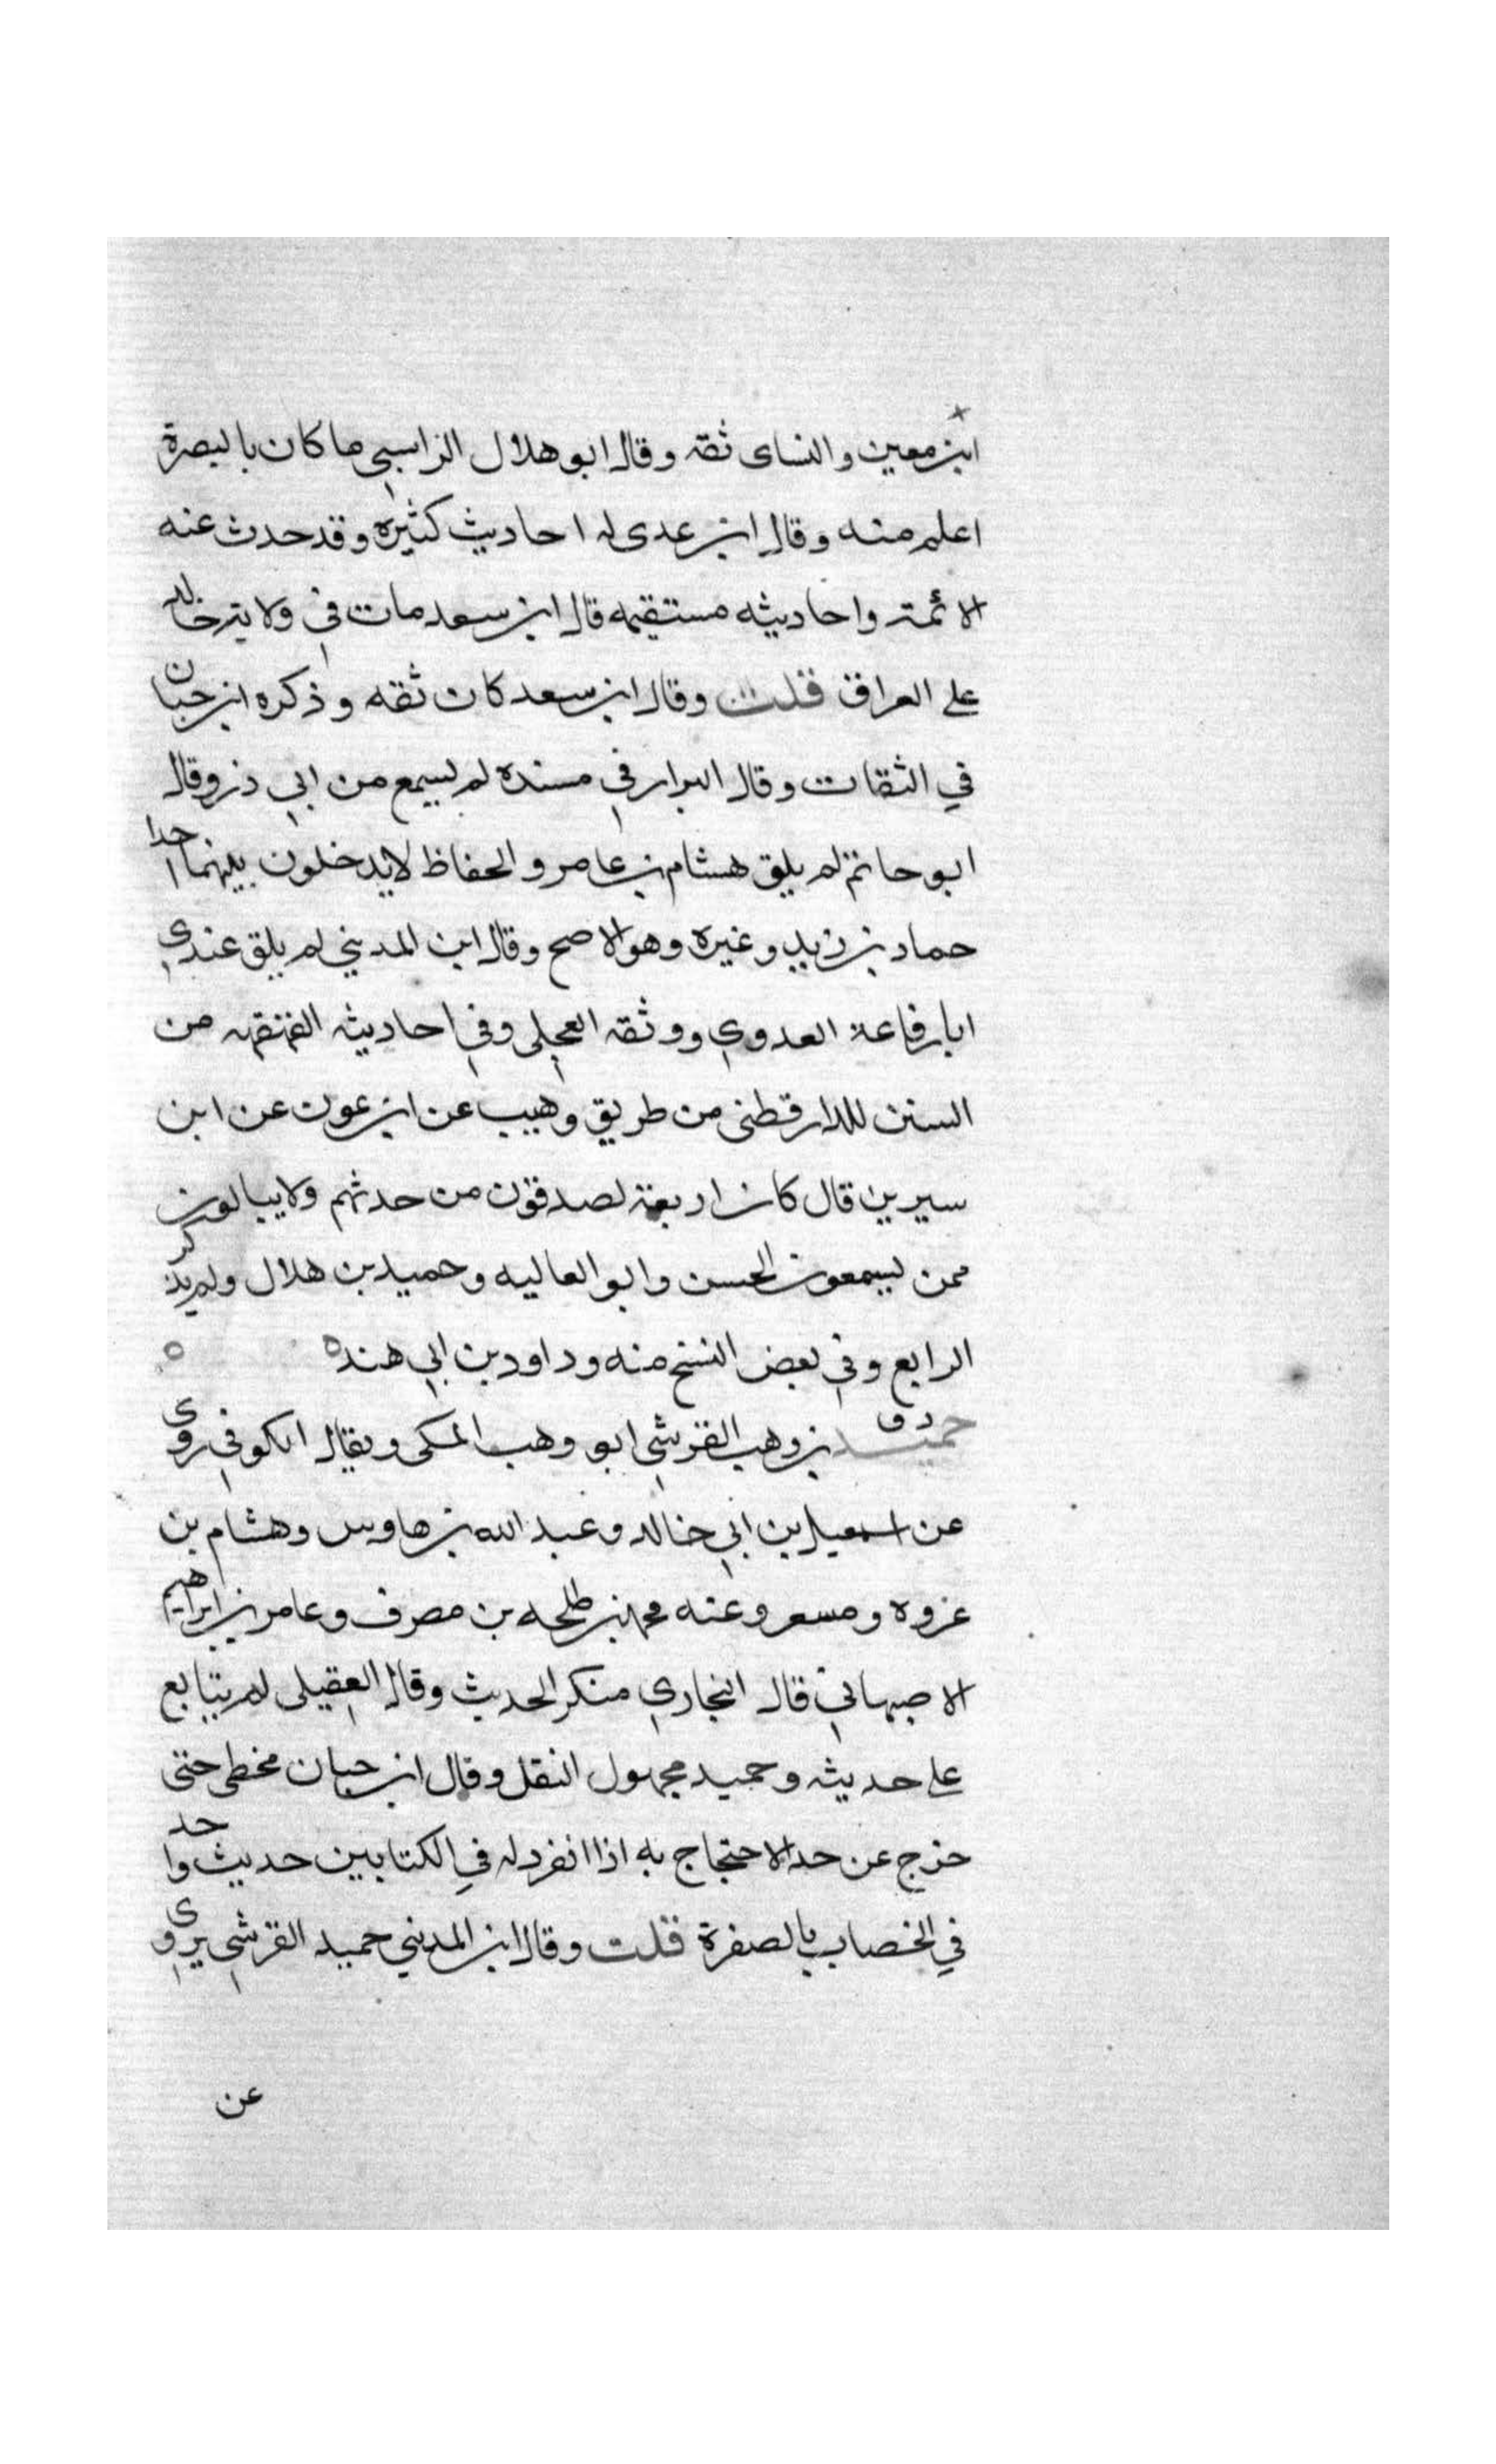 ابن معين والنساى ثقه وقال ابو هلال الراسبي ما كان بالبصرة
اعلم منه وقال ابن عدى له احاديث كثيره وقد حدث عنه
الائمة واحاديثه مستقيمه قال ابن سعد مات في ولاية خالد
على العراق قلت وقال ابن سعد كان ثقه وذكره ابن حبان
في الثقات وقال البزار في مسنده لم يسمع من ابي ذر وقال
ابو حاتم لم يلق هشام بن عامر والحفاظ لا يدخلون بينهما احدا
حماد بن زيد وغيره وهو الاصح وقال ابن المديني لم يلق عندي
ابا رفاعة العدوي ووثقه العجلي وفي احاديثه القهقهه من
السنن للدارقطنى من طريق وهيب عن ابن عون عن ابن
سيرين قال كان اربعة لصدقون من حدثهم ولا يبالون
ممن يسمعون الحسن وابو العاليه وحميد بن هلال ولم يذكر
الرابع وفي بعض النسخ منه وداود بن ابي هند ه ه
د ق
حميد بن وهب القرشي ابو وهب المكى ويقال الكوفي روى
عن اسمعيل بن ابي خالد وعبد الله بن طاوس وهشام بن
عروه ومسعر وعنه محمد بن طلحه بن مصرف وعامر بن ابراهيم
الاصبهاني قال البخاري منكر الحديث وقال العقيلى لم يتابع
على حديثه وحميد مجهول النقل وقال ابن حبان يخطى حتى
خرج عن حد الاحتجاج به اذا انفرد له في الكتابين حديث واحد
في الخصاب بالصفرة قلت وقال ابن المديني حميد القرشي يروى
عن